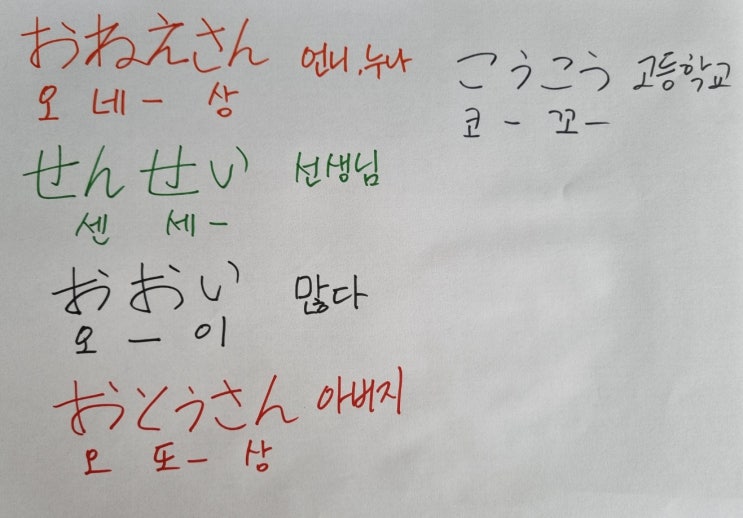 おねえさん 언니, 누나
오 네 - 상
せんせい 선생님
센 세 -
おおい 많다
오 - 이
おとうさん 아버지
오 또 - 상
こうこう 고등학교
코 - 꼬 -